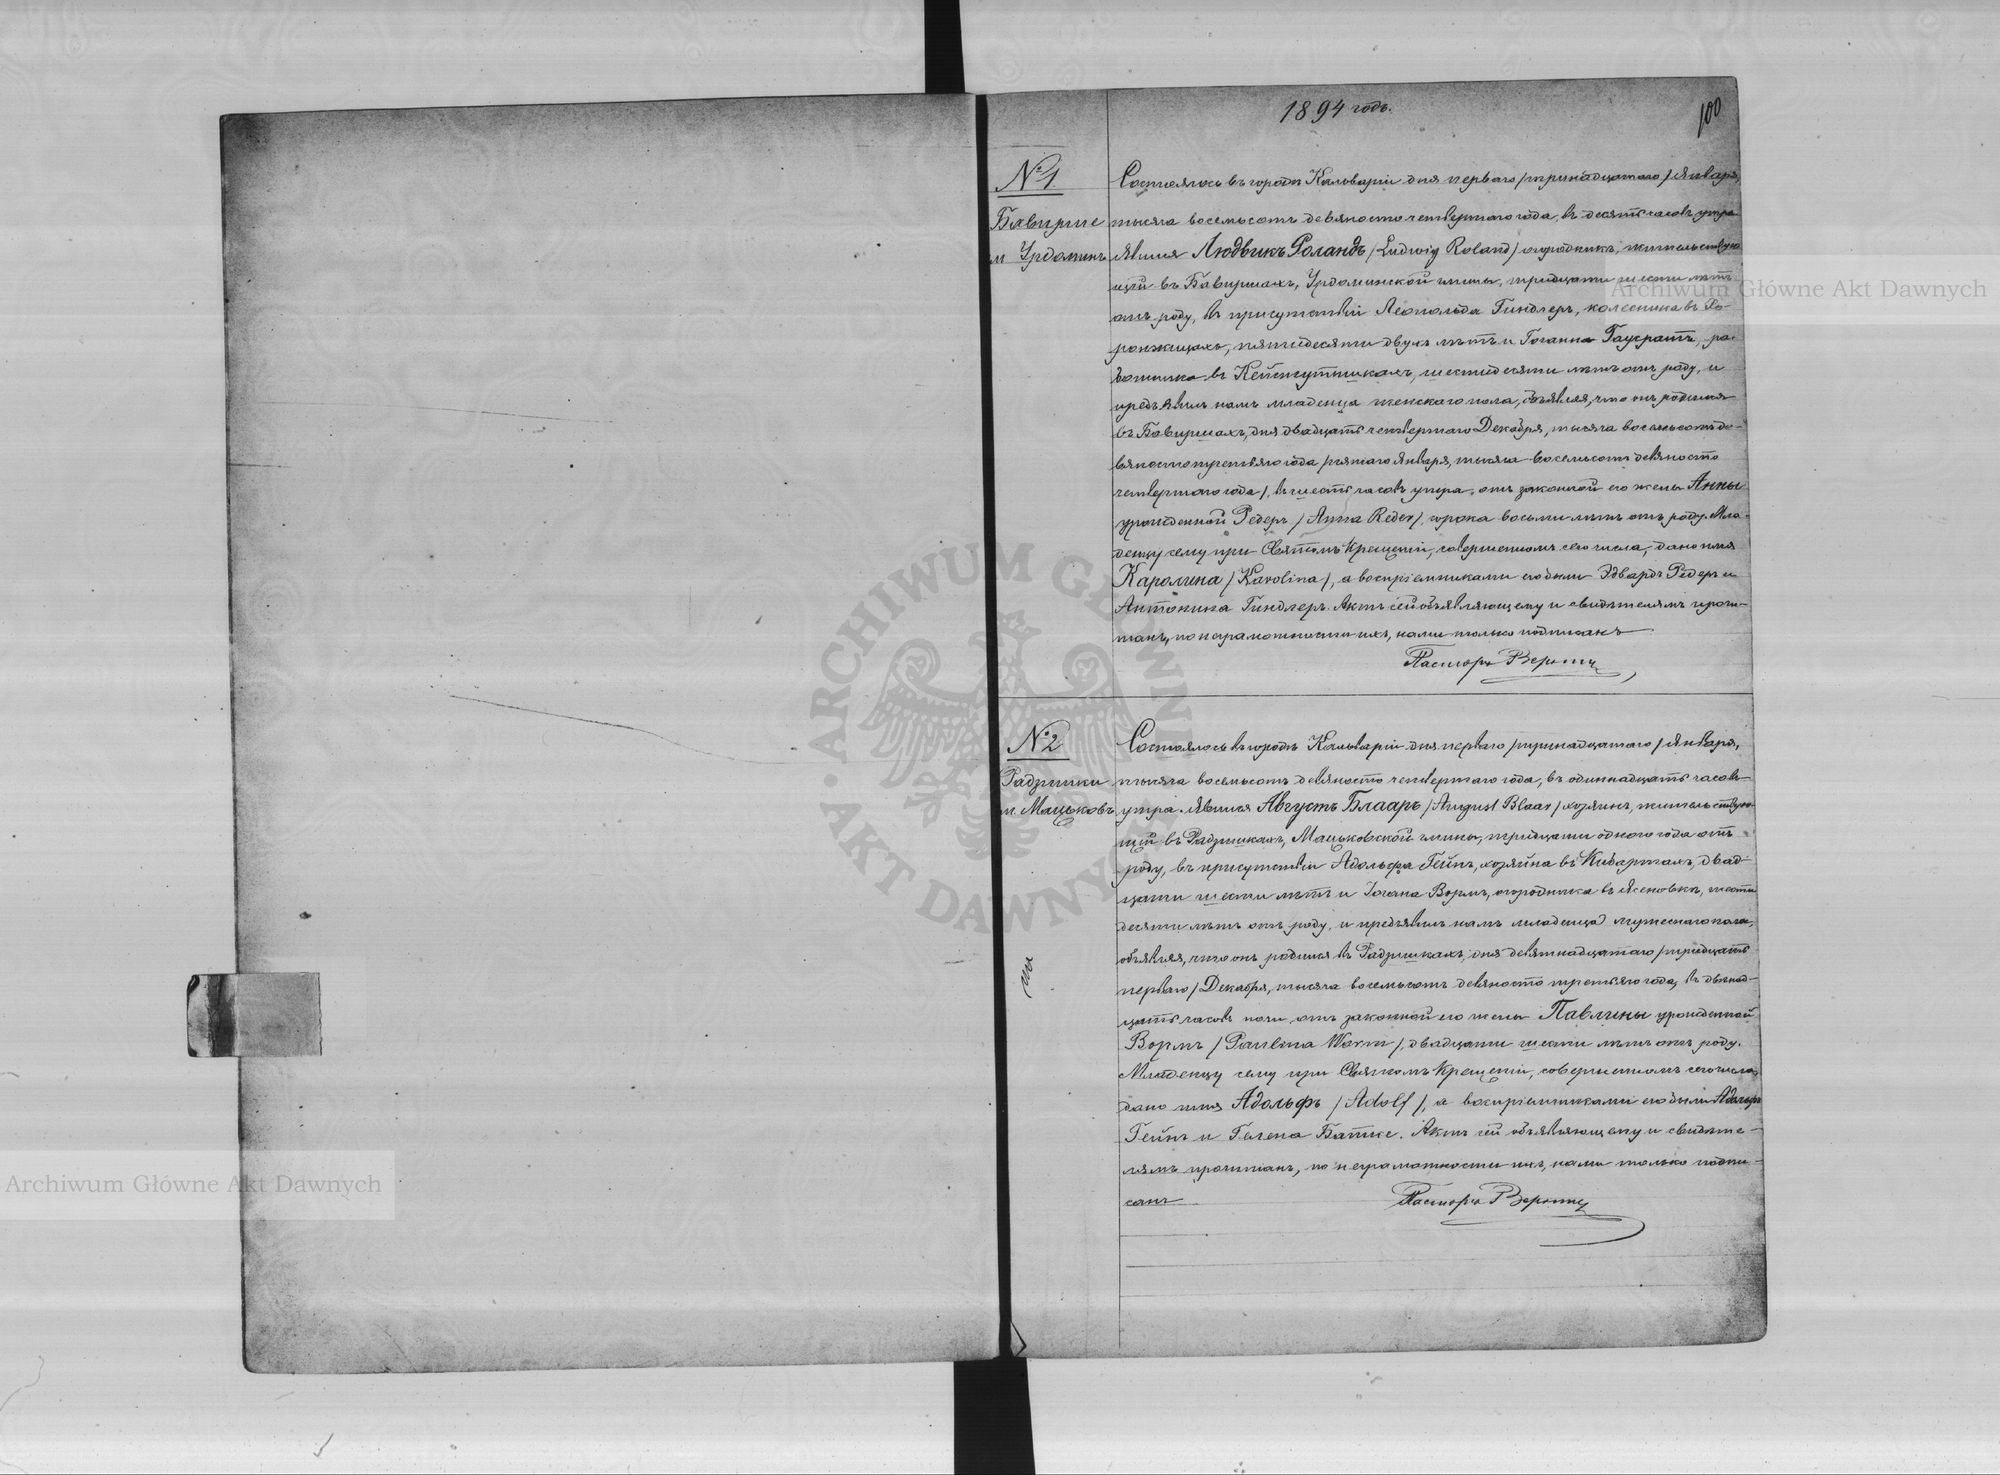 1894 годъ.
100
№ 1
Бавирше
и Урдоминъ
Состоялось въ городѣ Кальваріи дня перваго /тринадцатаго/ Января,
тысяча восемьсотъ девяносто четвертаго года, въ десять часовъ утра
явился Людвикъ Роландъ /Ludwig Roland/ огородникъ, жительствую-
щій въ Бавиршахъ, Урдоминской гмины, тридцати шести лѣтъ
отъ роду, въ присутствіи Леопольда Гиндлеръ, колесника въ
пятидесяти двухъ лѣтъ и Іоганна ра-
ботника въ шестидесяти лѣтъ отъ роду, и
предъявилъ намъ младенца женскаго пола, объявляя, что онъ родился
въ Бавиршахъ, дня двадцать четвертаго Декабря, тысяча восемьсотъ де-
вяносто третьяго года /пятаго Января, тысяча восемьсотъ девяносто
четвертаго года/, въ шесть часовъ утра, отъ законной его жены Анны
урожденной Редеръ /Anna Reder/, сорока восьми лѣтъ отъ роду. Мла-
денцу сему при Святомъ Крещеніи, совершенномъ сего числа, дано имя
Каролина /Karolina/, а воспріемниками его были Эдвардъ Редеръ и
Антонина Гиндлеръ. Актъ сей объявляющему и свидѣтелямъ прочи-
танъ, по неграмотности ихъ, нами только подписанъ
Пасторъ
№ 2
Радзишки
и. Мацьковъ
Состоялось въ городѣ Кальваріи дня перваго /тринадцатаго/ Января,
тысяча восемьсотъ девяносто четвертаго года, въ одиннадцать часовъ
утра. Явился Августъ Блааръ /August Blaar/ хозяинъ, жительствую-
щій въ Радзишкахъ, Мацьковской гмины, тридцати одного года отъ
роду, въ присутствіи Адольфа Гейнъ, хозяина въ Кибартахъ, двад-
цати шести лѣтъ и Іогана Вормъ, огородника въ Ясеновкѣ, шести
десяти лѣтъ отъ роду, и предъявилъ намъ младенца мужескаго пола,
объявляя, что онъ родился въ Радзишкахъ, дня девятнадцатаго /тридцать
перваго/ Декабря, тысяча восемьсотъ девяносто третьяго года, въ двѣнад-
цать часовъ ночи, отъ законной его жены Павлины урожденной
Вормъ /Paulina Worm/, двадцати шести лѣтъ отъ роду.
Младенцу сему при Святомъ Крещеніи, совершенномъ сего числа,
дано имя Адольфъ /Adolf/, а воспріемниками его были Адольфъ
Гейнъ и Гелена Батке. Актъ сей объявляющему и свидѣте-
лямъ прочитанъ, по неграмотности ихъ, нами только подпи-
санъ
Пасторъ
Archiwum Główne Akt Dawnych
Archiwum Główne Akt Dawnych
ARCHIWUM GŁÓWNE AKT DAWNYCH